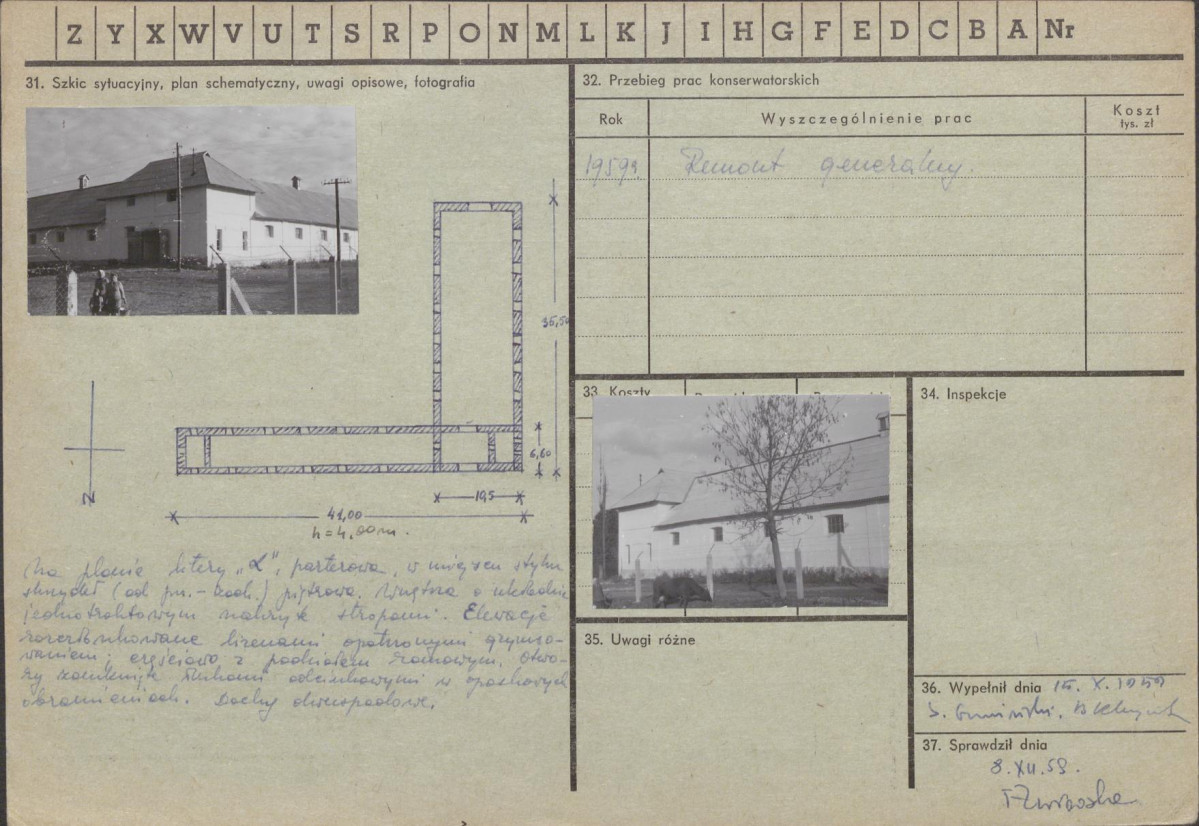 Z Y X W V U T S R P O N M L K J I H G F E D C B A Nr
31. Szkic sytuacyjny, plan schematyczny, uwagi opisowe, fotografia
35,50
6,60
10,5
41,00
h = 4,00 m.
N
Na planie litery „L", parterowa, w miejscu styku
skrzydeł (od pn.-zach.) piętrowa. Wnętrza o układzie
jednotraktowym nakryte stropami. Elewacje
rozczłonkowane lizenami opatrzonymi gzymso-
waniem, częściowo z podziałem ramowym. Otwo-
ry zamknięte łukami odcinkowymi w opaskowych
obramieniach. Dachy dwuspadowe.
32. Przebieg prac konserwatorskich
Rok
Wyszczególnienie prac
Koszt
tys. zł
1959 r.
Remont generalny.
33. Koszty
34. Inspekcje
35. Uwagi różne
36. Wypełnił dnia 15. X. 1959
S.
37. Sprawdził dnia
8. XII. 59.